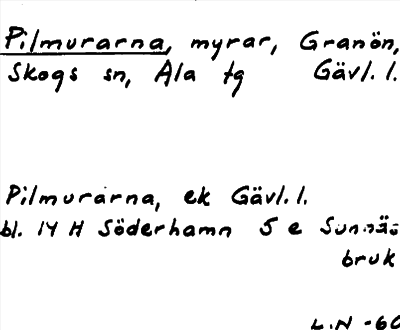 Pilmurarna, myrar, Granön,
Skogs sn, Ala tg Gävl. l.
Pilmurarna, ek Gävl. l.
bl. 14 H Söderhamn 5 e Sunnäs
bruk
L.N -60